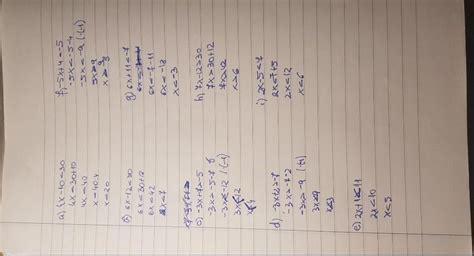 a) 4x-10=30
4x=30+10
4x=40
x=40:4
x=20
b) 6x-12=30
6x=30+12
6x=42
x=7
c) -3x+7≥-5
-3x≥-5-7
-3x≥-12 /(-1)
3x≤12
x≤4
d) -3x+2≥-7
-3x≥-7-2
-3x≥-9 /(-1)
3x≤9
x≤3
e) 2x+1≤11
2x≤10
x≤5
f) -5x+4=-5
-5x=-5-4
-5x=-9 /(-1)
g) 6x+11<-7
6x<-7-11
6x<-18
x<-3
h) 7x-12>30
7x>30+12
x>6
i) 2x-5<7
2x<7+5
2x<12
x<6